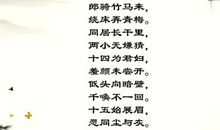 郎骑竹马来，
绕床弄青梅。
同居长干里，
两小无嫌猜。
十四为君妇，
羞颜未尝开。
低头向暗壁，
千唤不一回。
十五始展眉，
愿同尘与灰。